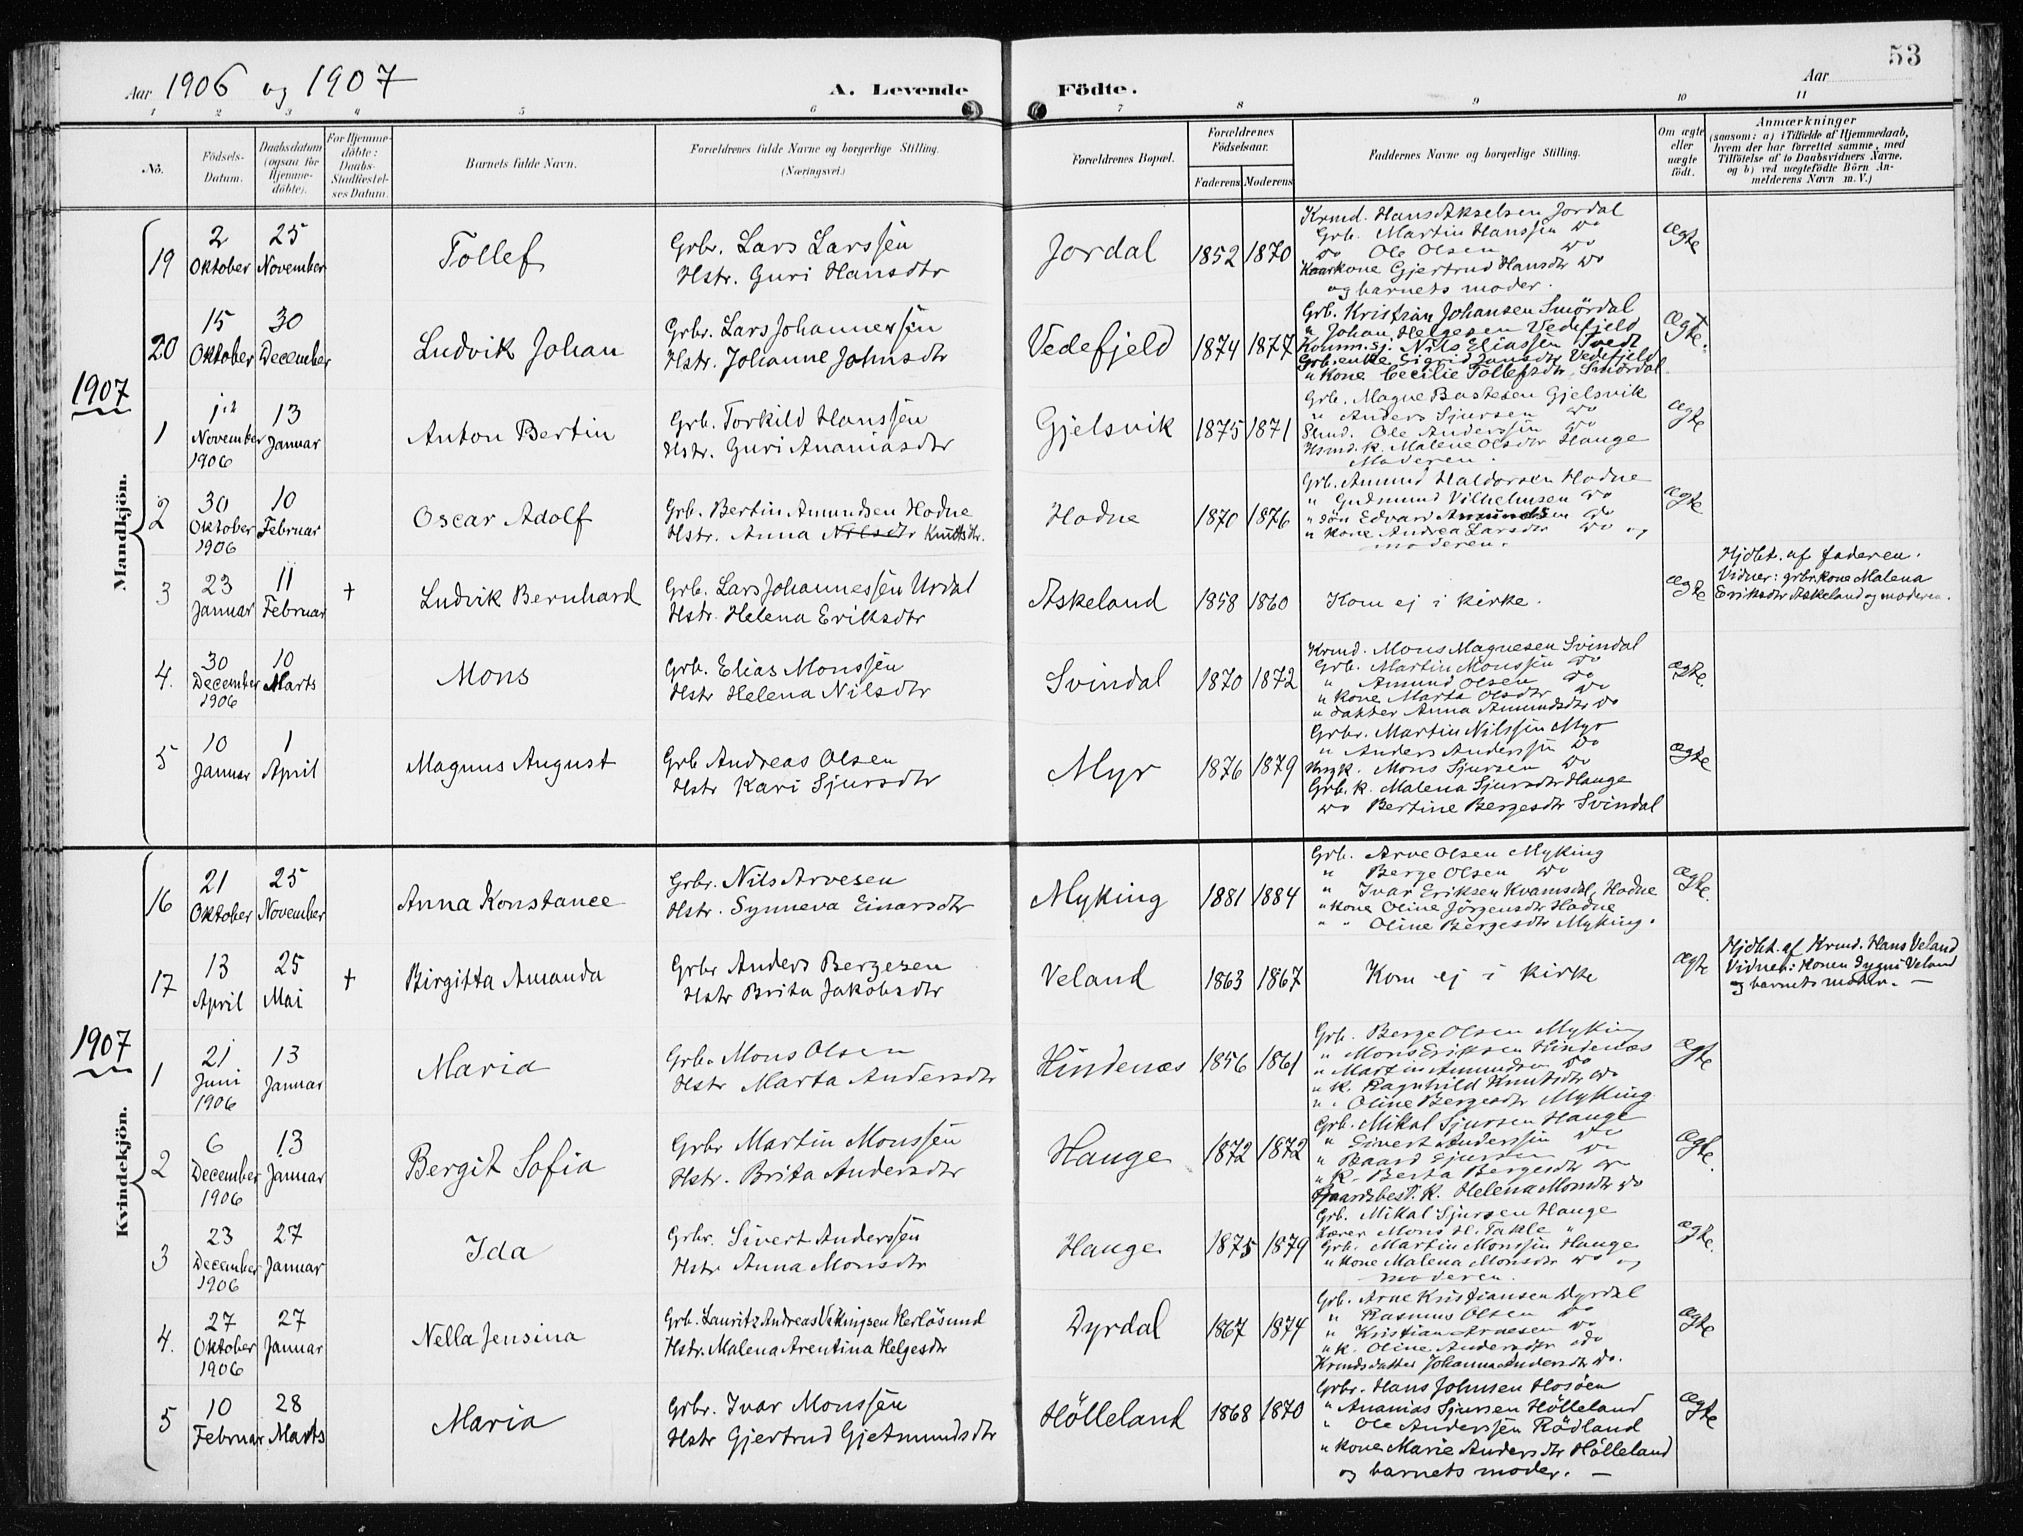 53
Aar 1906 og 1907
A. Levende Födte.
Aar
1 2 3 4 5 6 7 8 9 10 11
No.
Födsels-Datum.
Daabsdatum (ogsaa for Hjemme-döbte).
For Hjemme-döbte: Daabs-Stadfæstel-ses Datum.
Barnets fulde Navn.
Forældrenes fulde Navne og borgerlige Stilling. (Næringsvei.)
Forældrenes Bopæl.
Forældrenes Födselsaar.
Faderens Moderens
Faddernes Navne og borgerlige Stilling.
Om ægte eller uægte födt.
Anmærkninger
(saasom: a) i Tilfælde af Hjemmedaab, hvem der har forrettet samme, med Tilföielse af to Daabsvidners Navne, og b) ved uægtefödte Börn An-melderens Navn m. V.)
Mandkjön.
19
2 Oktober
25 November
Tollef
Grbr. Lars Larssen
Hstr. Guri Hansdtr
Jordal
1852 1870
Krmd. Hans Akselsen Jordal
Grb. Martin Hanssen do
do Ole Olsen do
kone Gjertrud Hansdtr do
og barnets moder.
Ægte
20
15 Oktober
30 December
Ludvik Johan
Grbr. Lars Johannessen
Hstr. Johanne Johnsdtr
Vedefjeld
1874 1877
Grb. Kristian Johansen Smördal
" Johan Helgesen Vedefjeld
Nils Eliassen
Grb.enke Sigrid Vedefjeld
" Kone Cecilie Tollefsdtr Smördal
Ægte.
1907
1
November 1906
13 Januar
Anton Bertin
Grb. Torkild Hanssen
Hstr. Guri Ananiasdtr
Gjelsvik
1875 1871
Grb. Magne Bastesen Gjelsvik
" Anders Sjursen do
Ole Anderssen do
Hsmd. k. Malene Olsdtr Hauge
Moderen.
Ægte
2
30 Oktober 1906
10 Februar
Oscar Adolf
Grb. Bertin Amundsen Hodne
Hstr. Anna Nilsdtr Knutsdtr.
Hodne
1870 1876
Grb. Amund Haldorsen Hodne
" Gudmund Vilhelmsen do
" sön Edvard Amundsen do
" Kone Andrea Larsdtr do og
moderen.
Ægte
3
23 Januar
11 Februar
+
Ludvik Bernhard
Grb. Lars Johannessen Urdal
Hstr. Helena Eriksdtr
Askeland
1858 1860
Kom ej i kirke.
Ægte
Hjdbt. af faderen.
Vidner: grbr.kone Malena
Eriksdtr Askeland og moderen.
4.
30 December 1906
10 Marts
Mons
Grb. Elias Monssen
Hstr Helena Nilsdtr
Svindal
1870 1872
Krmd. Mons Magnesen Svindal
Grb. Martin Monssen do
" Amund Olsen do
" Kone Marta Olsdtr do
" datter Anna Amundsdtr do
Ægte.
5
10 Januar
1 April
Magnus August
Grb Andreas Olsen
Hstr Kari Sjursdtr
Myr
1876 1879
Grbr. Martin Nilssen Myr
" Anders Anderssen do
Mons Sjursen do
Grb. k. Malena Sjursdtr Hauge
do Bertine Bergesdtr Svindal
Ægte
Kvindekjön.
16
21 Oktober
25 November
Anna Konstance
Grbr. Nils Arvesen
Hstr. Synneva Einarsdtr
Myking
1881 1884
Grb. Arve Olsen Myking
" Berge Olsen do
" Ivar Eriksen Kvamsdal, Hodne
" Kone Oline Jörgensdtr Hodne
" " Oline Bergesdtr Myking.
Ægte.
17
13 April
25 Mai
+
Birgitta Amanda
Grbr Anders Bergesen
Hstr Brita Jakobsdtr
Veland
1863 1867
Kom ej i kirke
Ægte
Hjdbt. af Krmd. Hans Veland
Vidner: Konen Sygni Veland
og barnets moder. —
1907
1
21 Juni 1906
13 Januar
Maria
Grb. Mons Olsen
Hstr Marta Andersdtr
Hindenæs
1856 1861
Grb. Berge Olsen Myking
" Mons Eriksen Hindenæs
" Martin Amundsen do
" K. Ragnhild Knutsdtr do
" " Oline Bergesdtr Myking
Ægte
2
6 December 1906
13 Januar
Bergit Sofia
Grbr Martin Monssen
Hstr. Brita Andersdtr
Hauge
1872 1872
Grb. Mikal Sjursen Hauge
" Sivert Anderssen do
" Baard Sjursen do
" K. Berta Bergesdtr do
Gaardsbest. K. Helena Monsdtr do
Ægte.
3
23 December 1906
27 Januar
Ida
Grbr. Sivert Anderssen
Hstr Anna Monsdtr
Hauge
1875 1879
Grb. Mikal Sjursen Hauge
Lærer Mons H. Takle "
Grb. Martin Monssen Hauge
" Kone Malena Monsdtr do og
moderen.
Ægte.
4.
27 Oktober 1906
27 Januar
Nella Jensina
Grb. Lauritz Andreas Vikingsen Herlösund
Hstr. Malena Arentina Helgesdtr
Dyrdal
1867 1874
Grb. Arne Kristiansen Dyrdal
" Rasmus Olsen do
" Kristian Arnesen do
" K. Oline Andersdtr do
Krmds datter Johanna Andersdtr do.
Ægte
5
10 Februar
28 Marts
Maria
Grbr. Ivar Monssen
Hstr Gjertrud Gjetmundsdtr
Hölleland
1868 1870
Grbr. Hans Johnsen Hosöen
" Ananias Sjursen Hölleland
" Ole Anderssen Rödland
" Kone Marie Andersdtr Hölleland
og barnets moder. —
Ægte